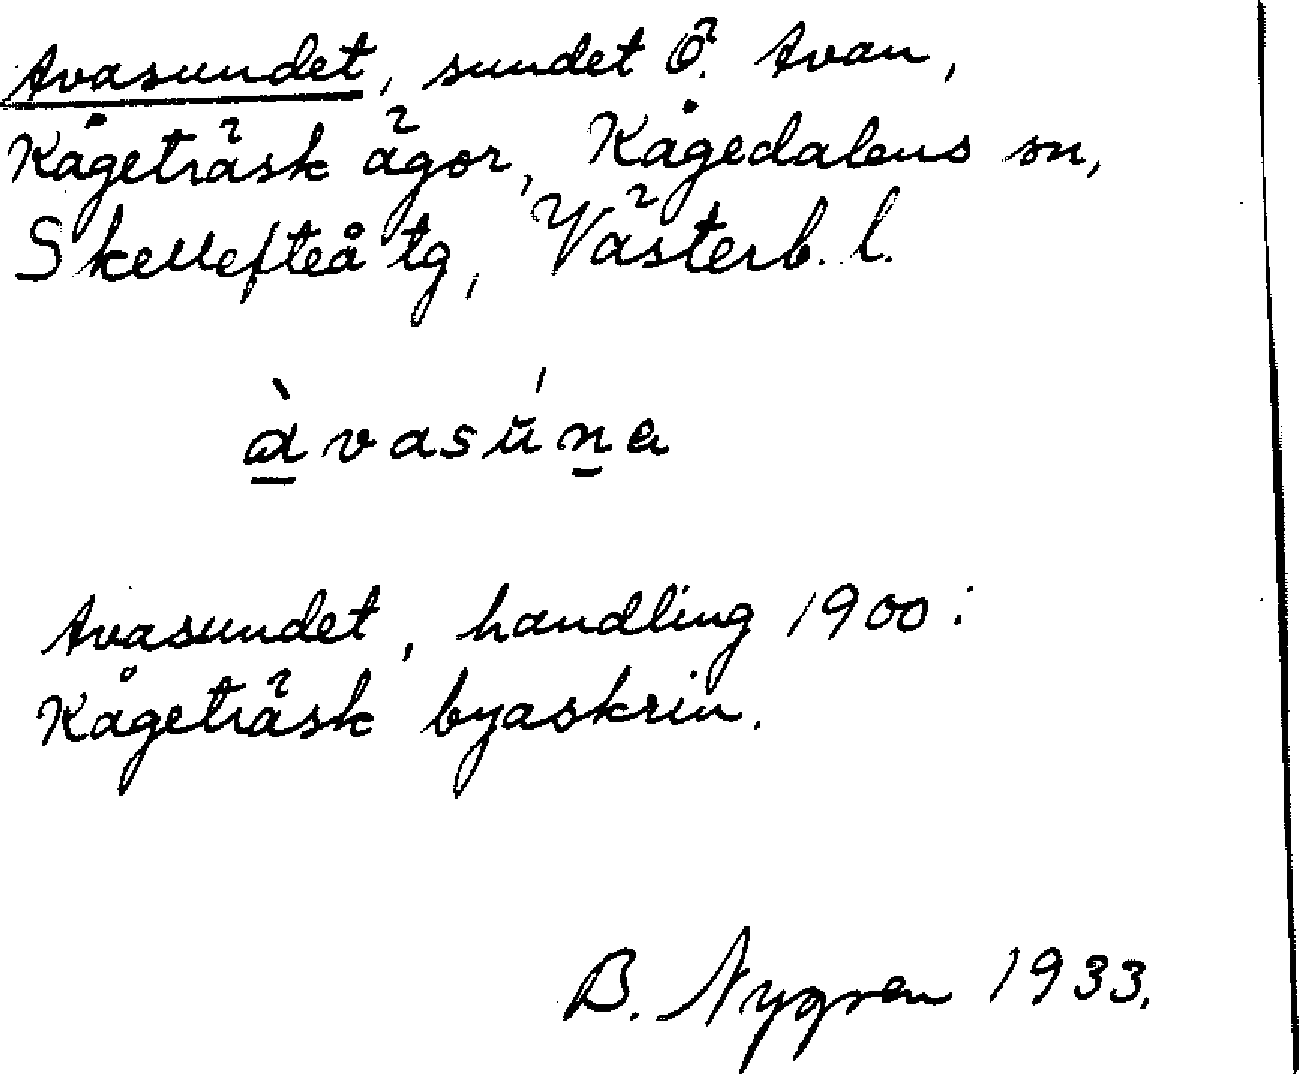 Avasundet, sundet Ö. Avan,
Kågeträsk ägor, Kågedalens sn,
Skellefteå tg, Västerb. l.
àvasŭ́na
Avasundet, handling 1900:
Kågeträsk byaskrin.
B. Nygren 1933.